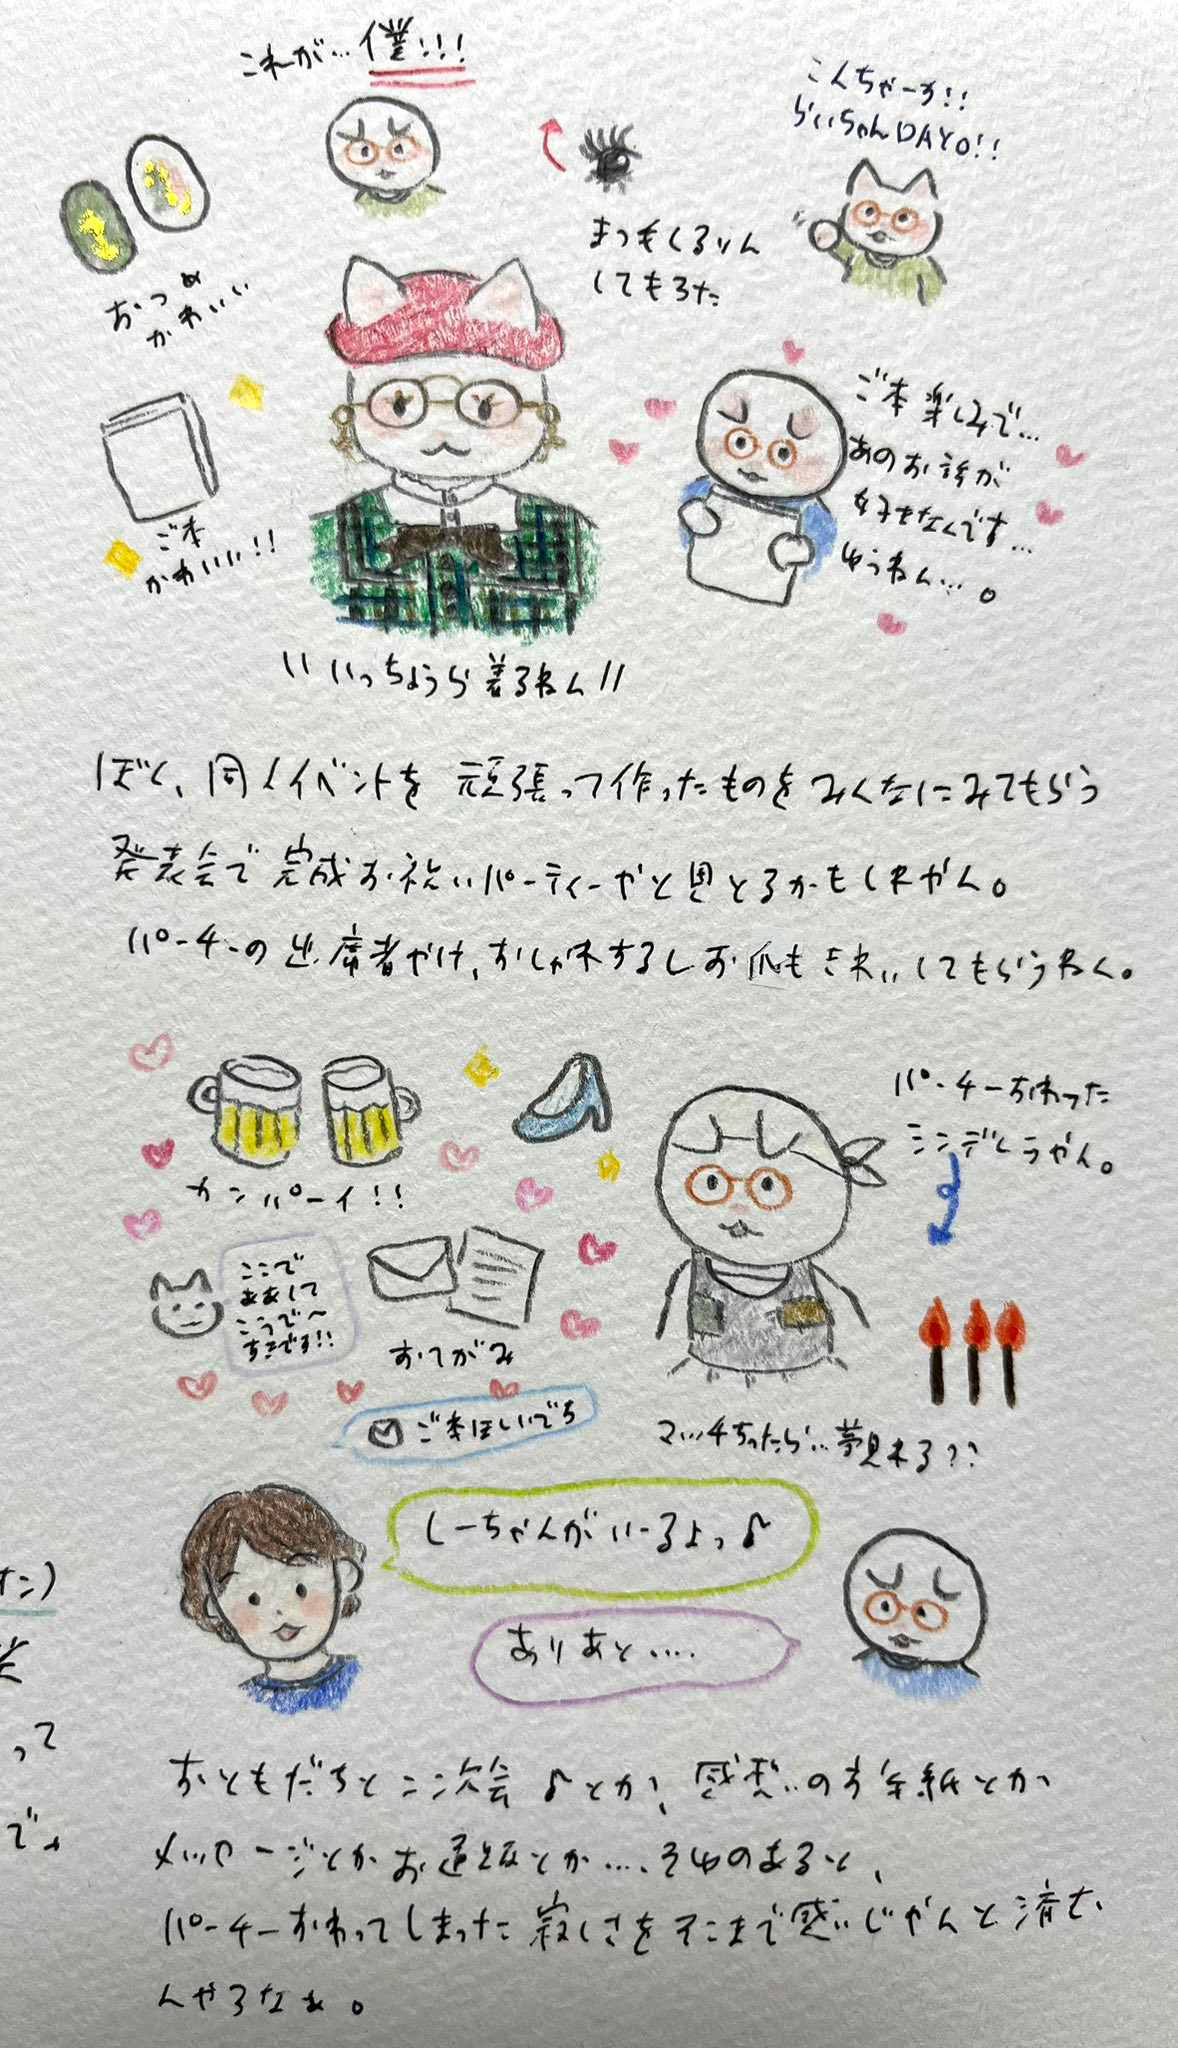 これが…僕!!!
こんちゃーす!!
らいちゃんDAYO!!
まつもくるりん
してもろた
おつめ
かわいい
ご本
かわいい!!
ご本楽しみで…
あのお話が
好きなんです…
ゆうねん…。
\\ いっちょうら着るねん //
ぼく、同人イベントを頑張って作ったものをみんなにみてもらう
発表会で完成お祝いパーティーやと思とるかもしれやん。
パーチーの出席者やけ、おしゃれするしお爪もきれいしてもらうねん。
カンパーイ!!
パーチーおわった
シンデレラやん。
ここで
ああして
こうで〜
すきです!!
おてがみ
ご本ほしいでち
マッチもったら…夢見れる??
しーちゃんがいーるよっ♪
ありあと….
ォン)
って
おともだちと二次会♪とか、感想のお手紙とか
メッセージとかお返事とか….そゆのあると、
パーチーおわってしまった寂しさをそこまで感じやんと済む
んやろなぁ。